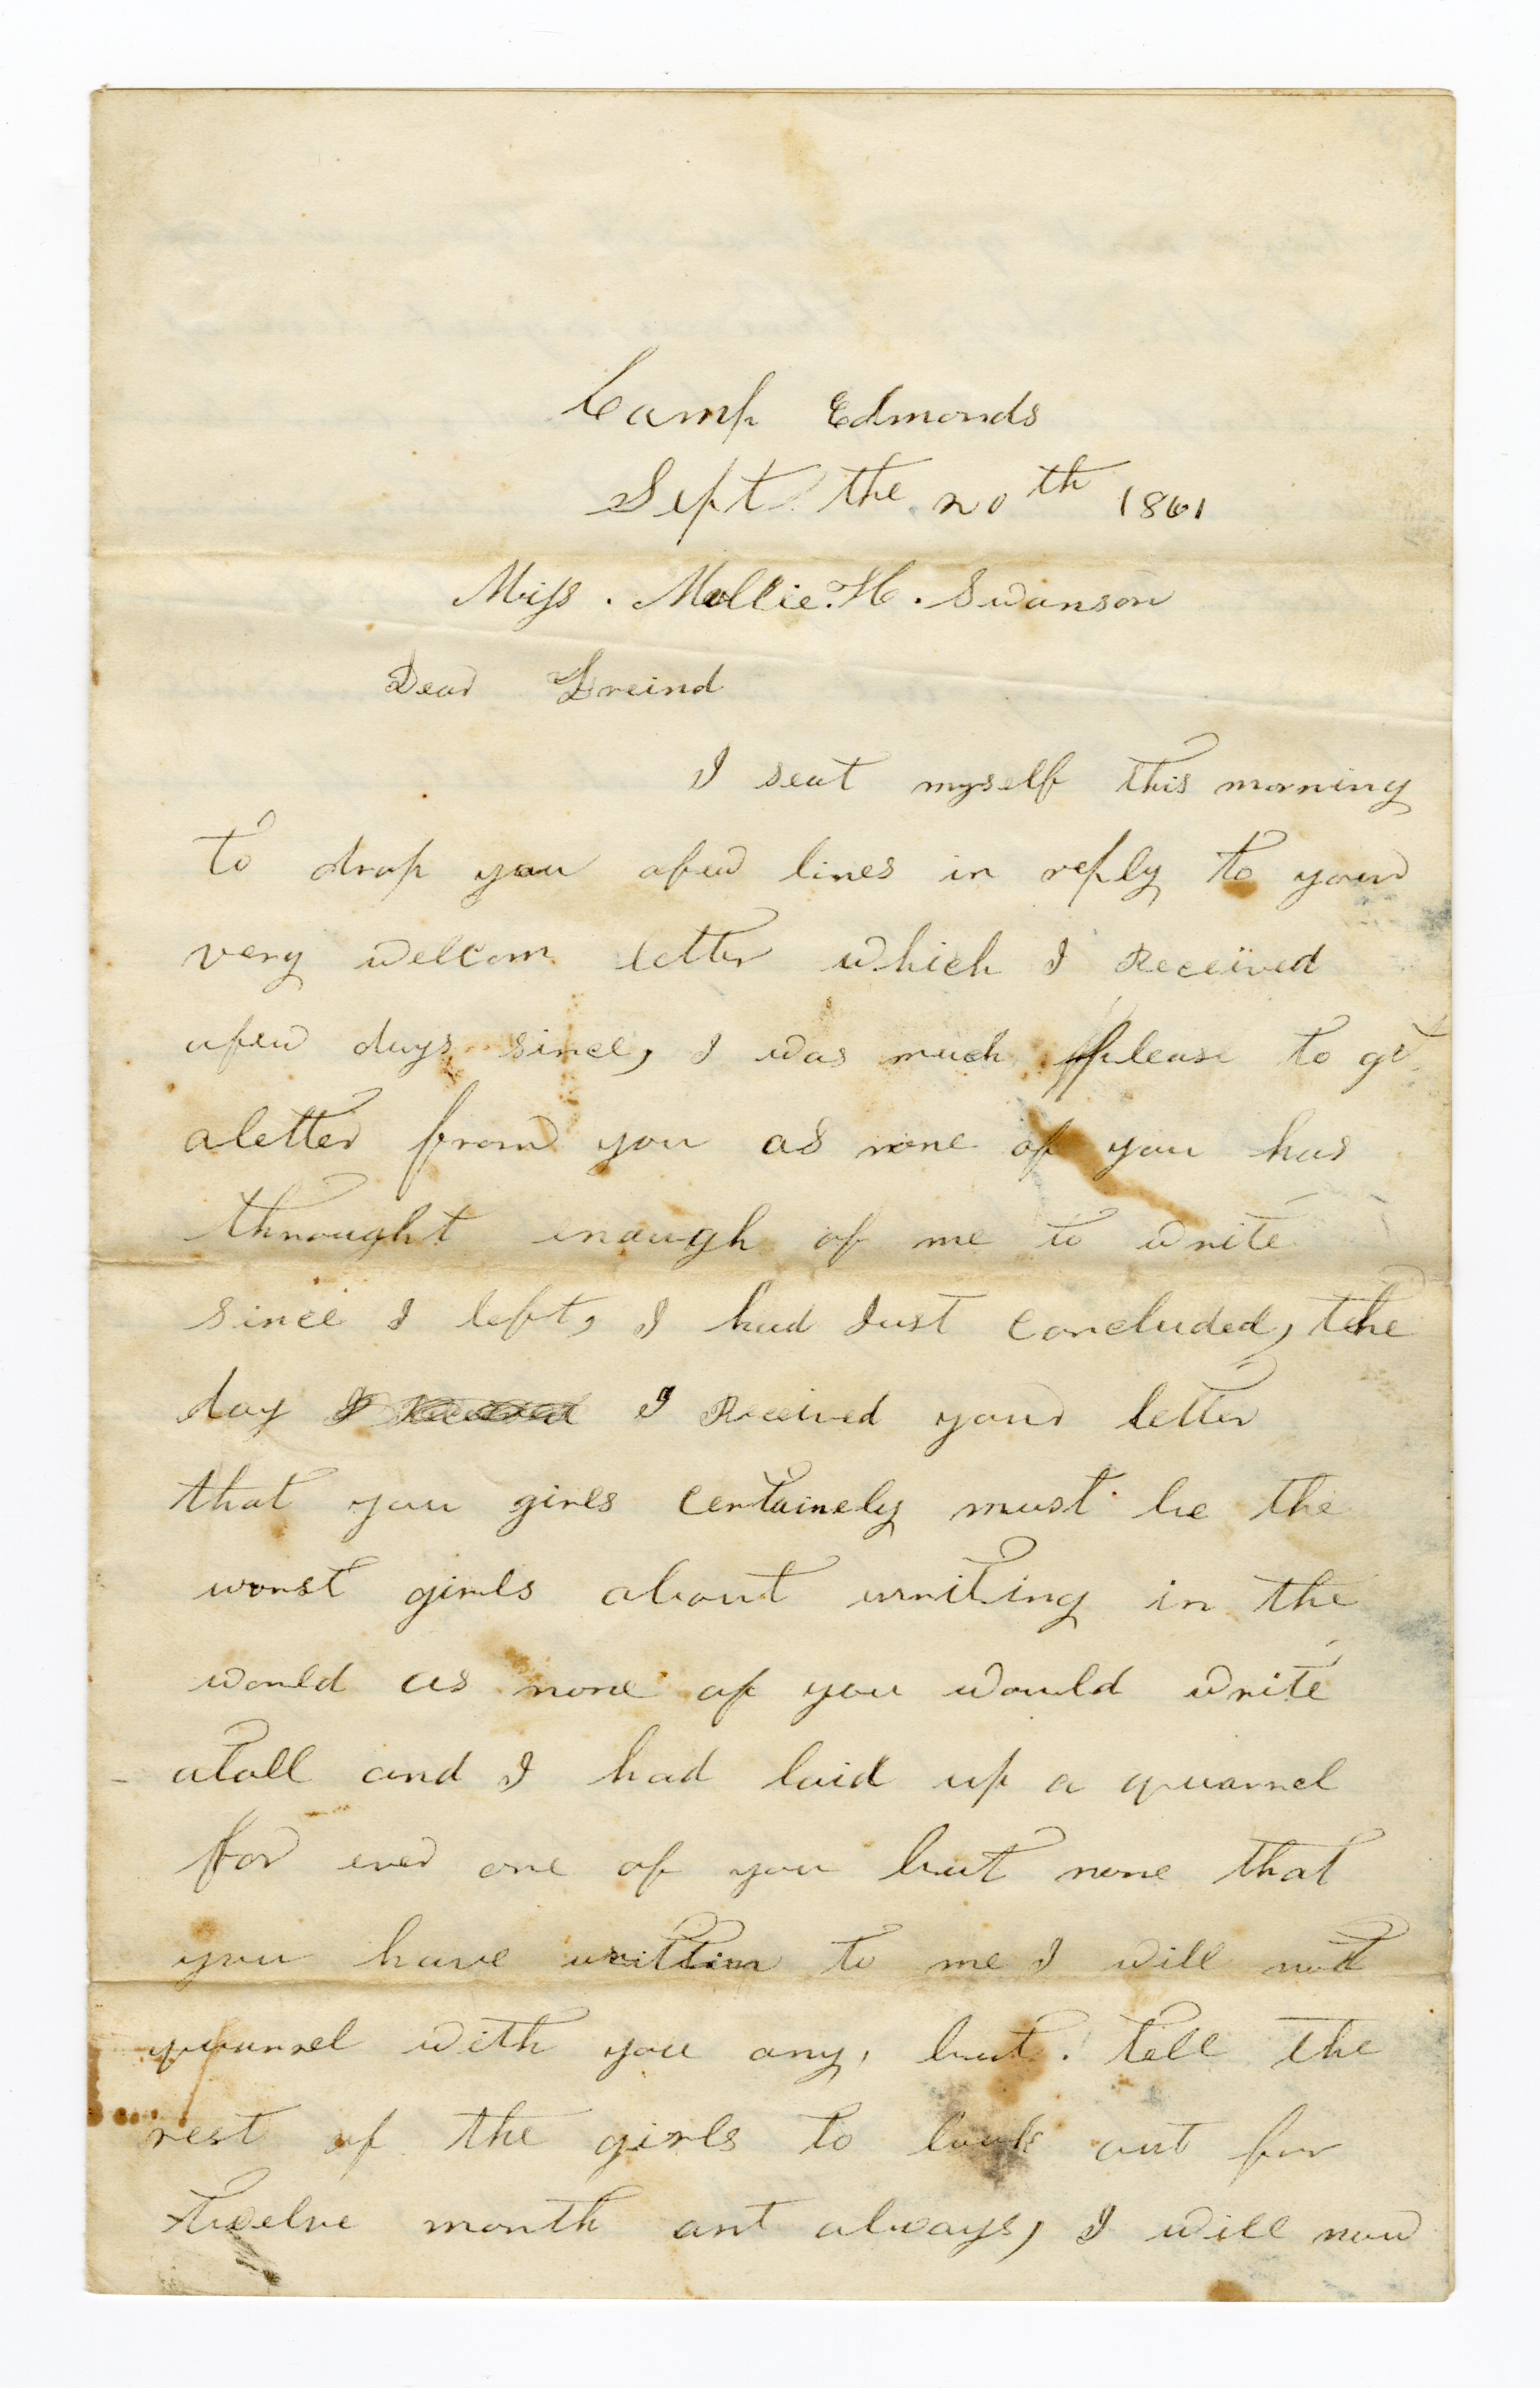 Camp Edmonds
Sept the 20th 1861
Miss. Mollie. H. Swanson
Dear Freind
I seat myself this morning
to drop you afew lines in reply to your
very welcom letter which I Received
afew days since, I was much please to get
aletter from you as none of you has
throught enough of me to write
since I left, I had Just concluded, the
day I Received I Received your letter
that you girls certainely must be the
worst girls about writing in the
world as none of you would write
atall and I had laid up a quarrel
for ever one of you but none that
you have written to me I will not
quarrel with you any, but. tell the
rest of the girls to look out for
twelve month ant always, I will now